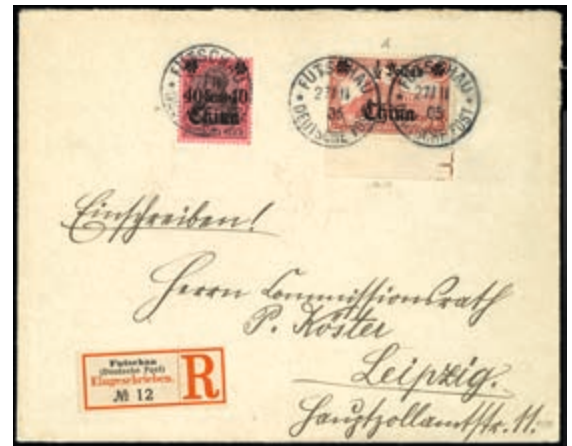 A
FUTSCHAU
DEUTSCHE POST
40 Cents 40
China
FUTSCHAU
27/11
05
DEUTSCHE POST
½ Dollar
China
FUTSCHAU
27/11
05
DEUTSCHE POST
Einschreiben!
Herrn Commissionsrath
P. Köster
Leipzig.
Hauptzollamtstr. 11.
Futschau
(Deutsche Post)
Eingeschrieben.
№ 12
R